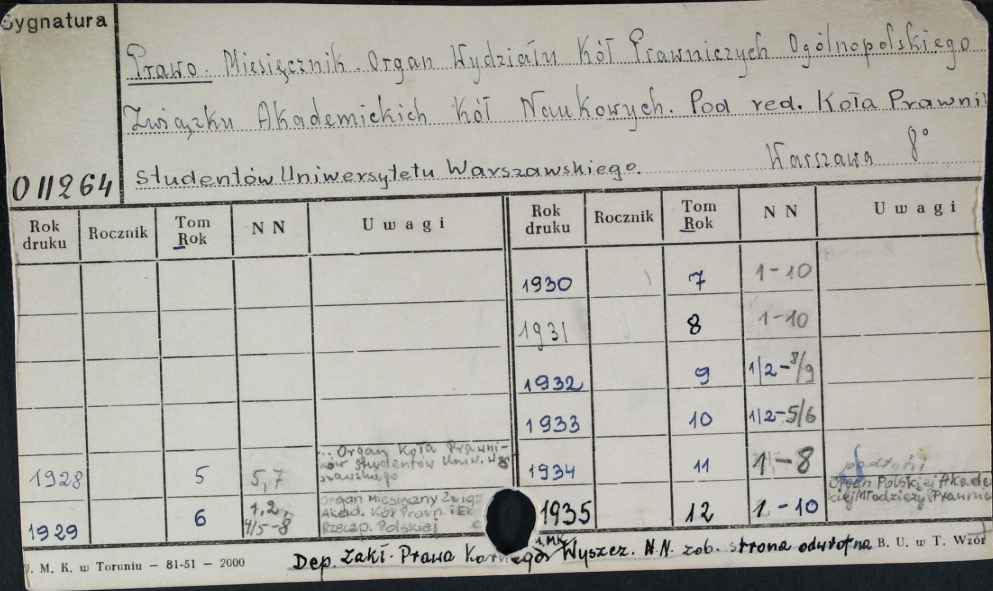 Sygnatura
Prawo. Miesięcznik. Organ Wydziału Kół Prawniczych Ogólnopolskiego
Związku Akademickich Kół Naukowych. Pod red. Koła Prawni
Studentów Uniwersytetu Warszawskiego. Warszawa 8°
011264
Rok druku Rocznik Tom Rok NN Uwagi Rok druku Rocznik Tom Rok NN Uwagi
1930 7 1-10
1931 8 1-10
1932 9 1/2-8/9
1933 10 1/2-5/6
1928 5 5,7 ... Organ Koła Prawni-
ków Studentów Uniw. W
szawskiego
1934 11 1-8
Organ Polskiej Akade
kiej Młodzieży Prawni
1929 6 1,2, 4/5-8 Organ Miesięczny Zwią
Akad. Kół Prawn. i Ek
Rzeczp. Polskiej
1935 12 1-10
Dep. Zakł. Prawa Wyszcz. N.N. zob. strona odwrotna B. U. w T. Wzór
U. M. K. w Toruniu — 81-51 — 2000